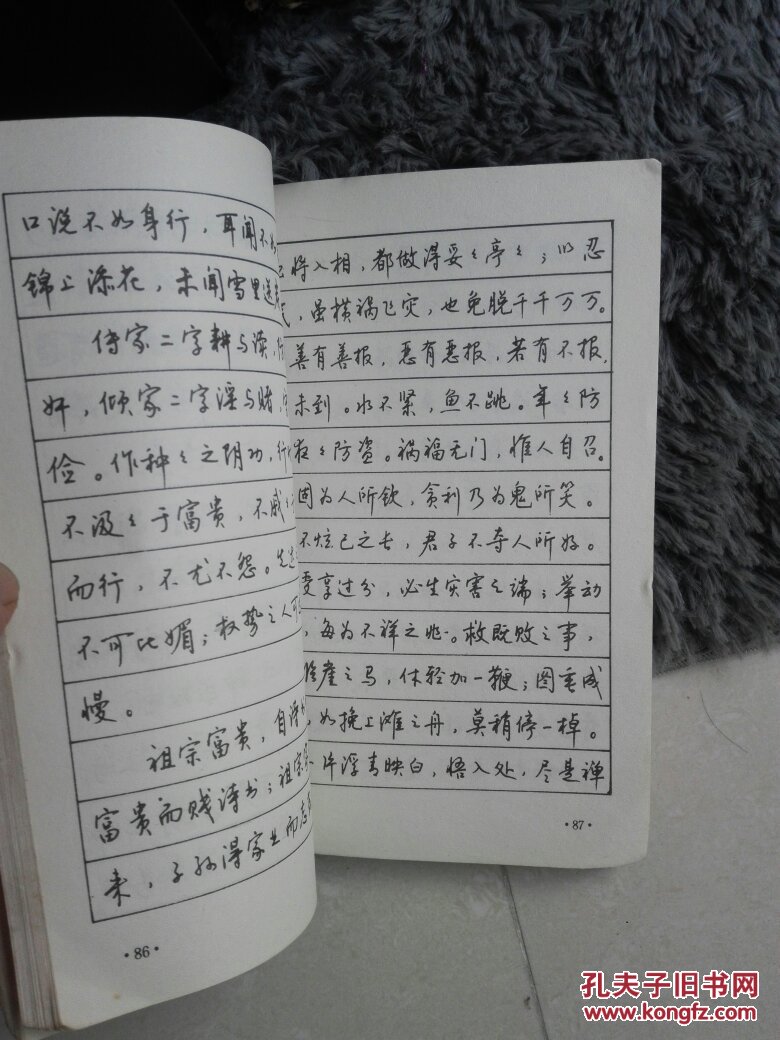 口说不如身行，耳闻不
锦上添花，未闻雪里送
传家二字耕与读，
奸，倾家二字淫与赌，
俭。作种々之阴功，行
不汲々于富贵，不戚
而行，不尤不怨。
不可比媚；权势之人
慢。
祖宗富贵，自诗
富贵而贱诗书；祖宗
来，子孙得家业而忘
·86·
将入相，都做得妥々亭々；以忍
气，虽横祸飞灾，也免脱千千万万。
善有善报，恶有恶报，若有不报，
未到。水不紧，鱼不跳。年々防
夜々防盗。祸福无门，惟人自召。
固为人所钦，贪利乃为鬼所笑。
不炫己之长，君子不夺人所好。
受享过分，必生灾害之端；举动
，每为不祥之兆。救既败之事，
崖之马，休轻加一鞭；图垂成
，如挽上滩之舟，莫稍停一棹。
片浮青映白，悟入处，尽是禅
·87·
孔夫子旧书网
www.kongfz.com